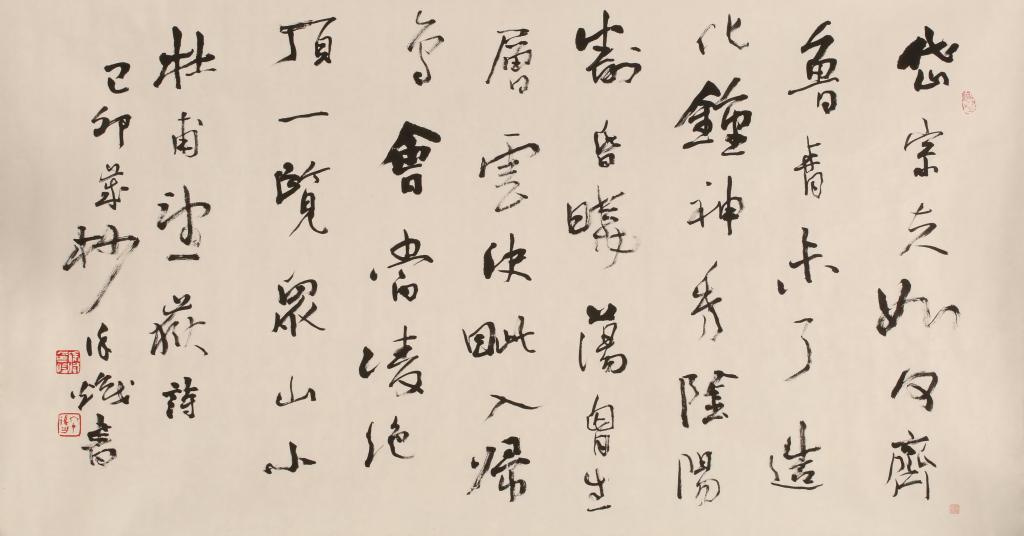 岱宗夫如何齊
魯青未了造
化鍾神秀陰陽
割昏曉蕩胷生
層雲決眦入歸
鳥會當凌絕
頂一覽眾山小
杜甫望嶽詩
己卯歲杪書